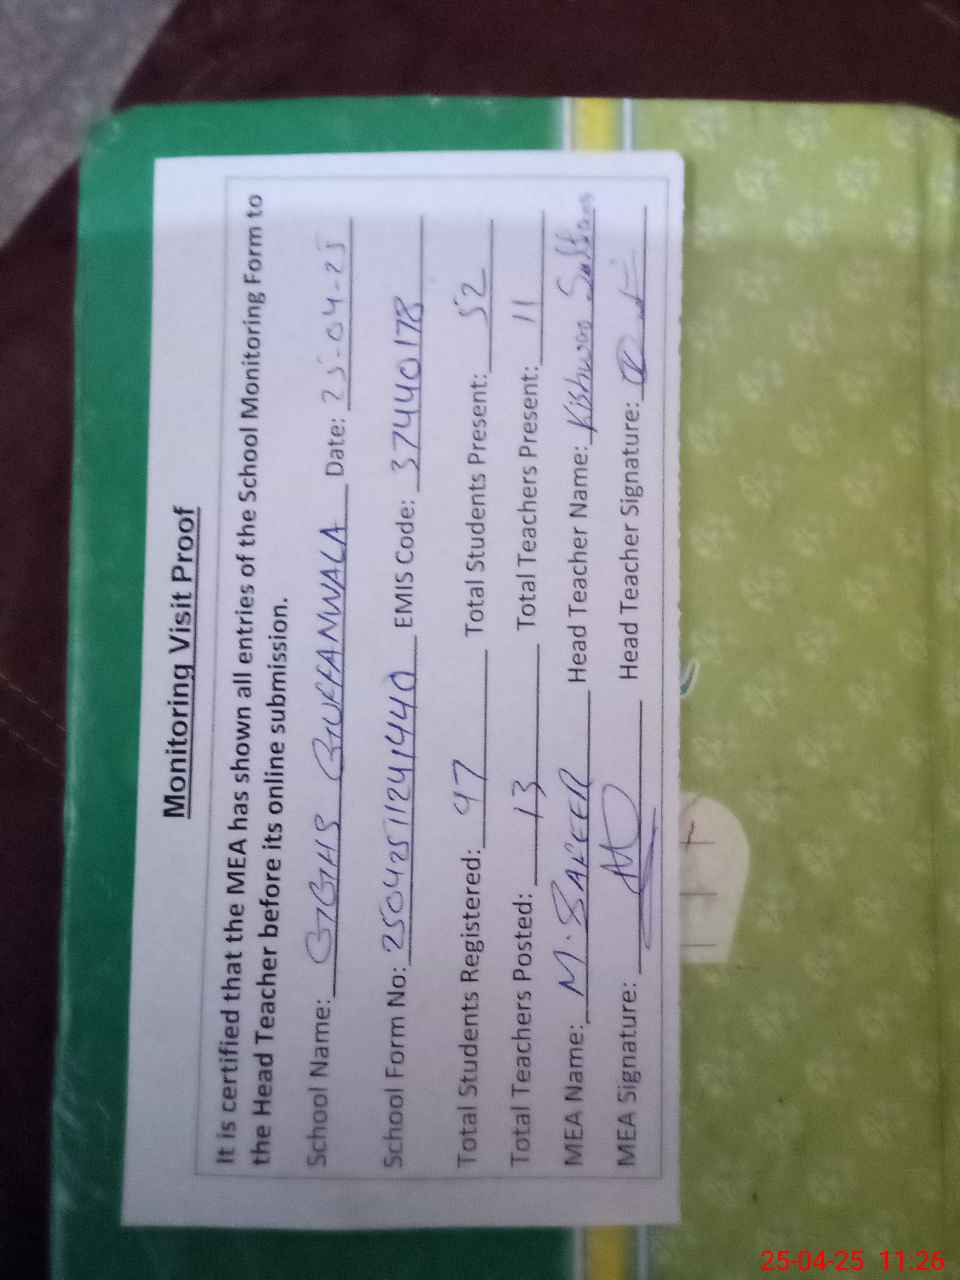 Monitoring Visit Proof
It is certified that the MEA has shown all entries of the School Monitoring Form to
the Head Teacher before its online submission.
School Name: GGHS GUFFANWALA Date: 25-04-25
School Form No: 25042511241440 EMIS Code: 37440178
Total Students Registered: 97 Total Students Present: 52
Total Teachers Posted: 13 Total Teachers Present: 11
MEA Name: M. SAFEER Head Teacher Name: Kishwar
MEA Signature: Head Teacher Signature:
25-04-25 11:26